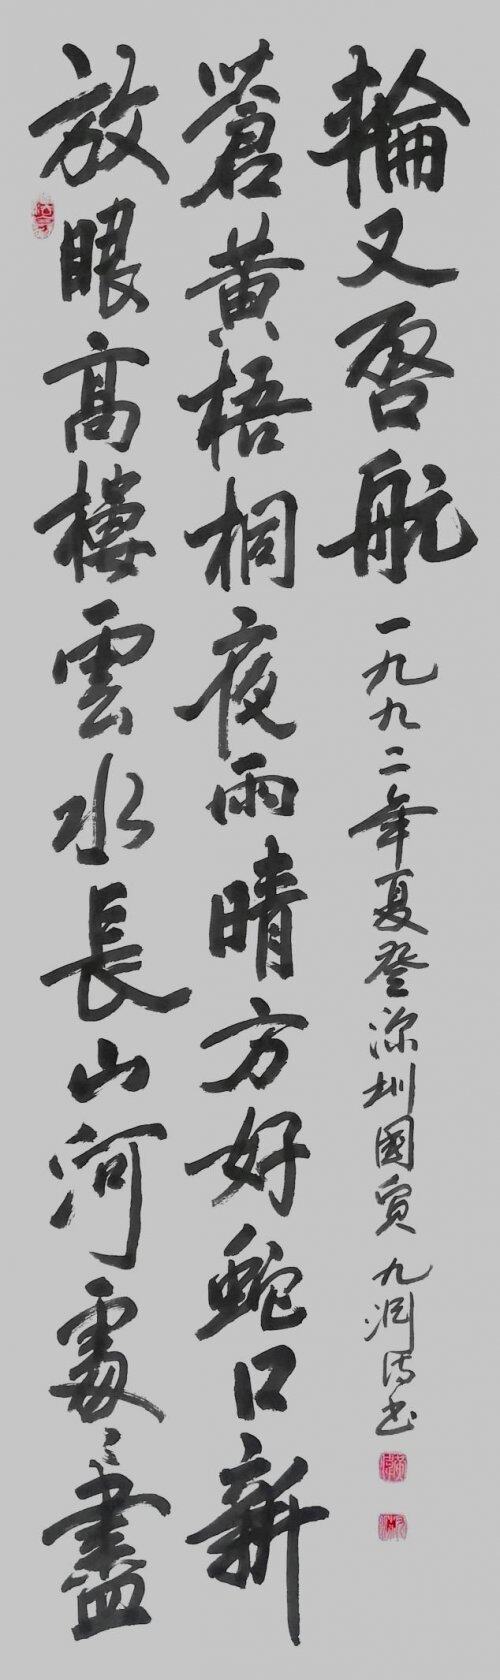 放眼高樓雲水長山河處〻盡
蒼黄梧桐夜雨晴方好蛇口新
輪又啓航
一九九二年夏登深圳國貿 九 书